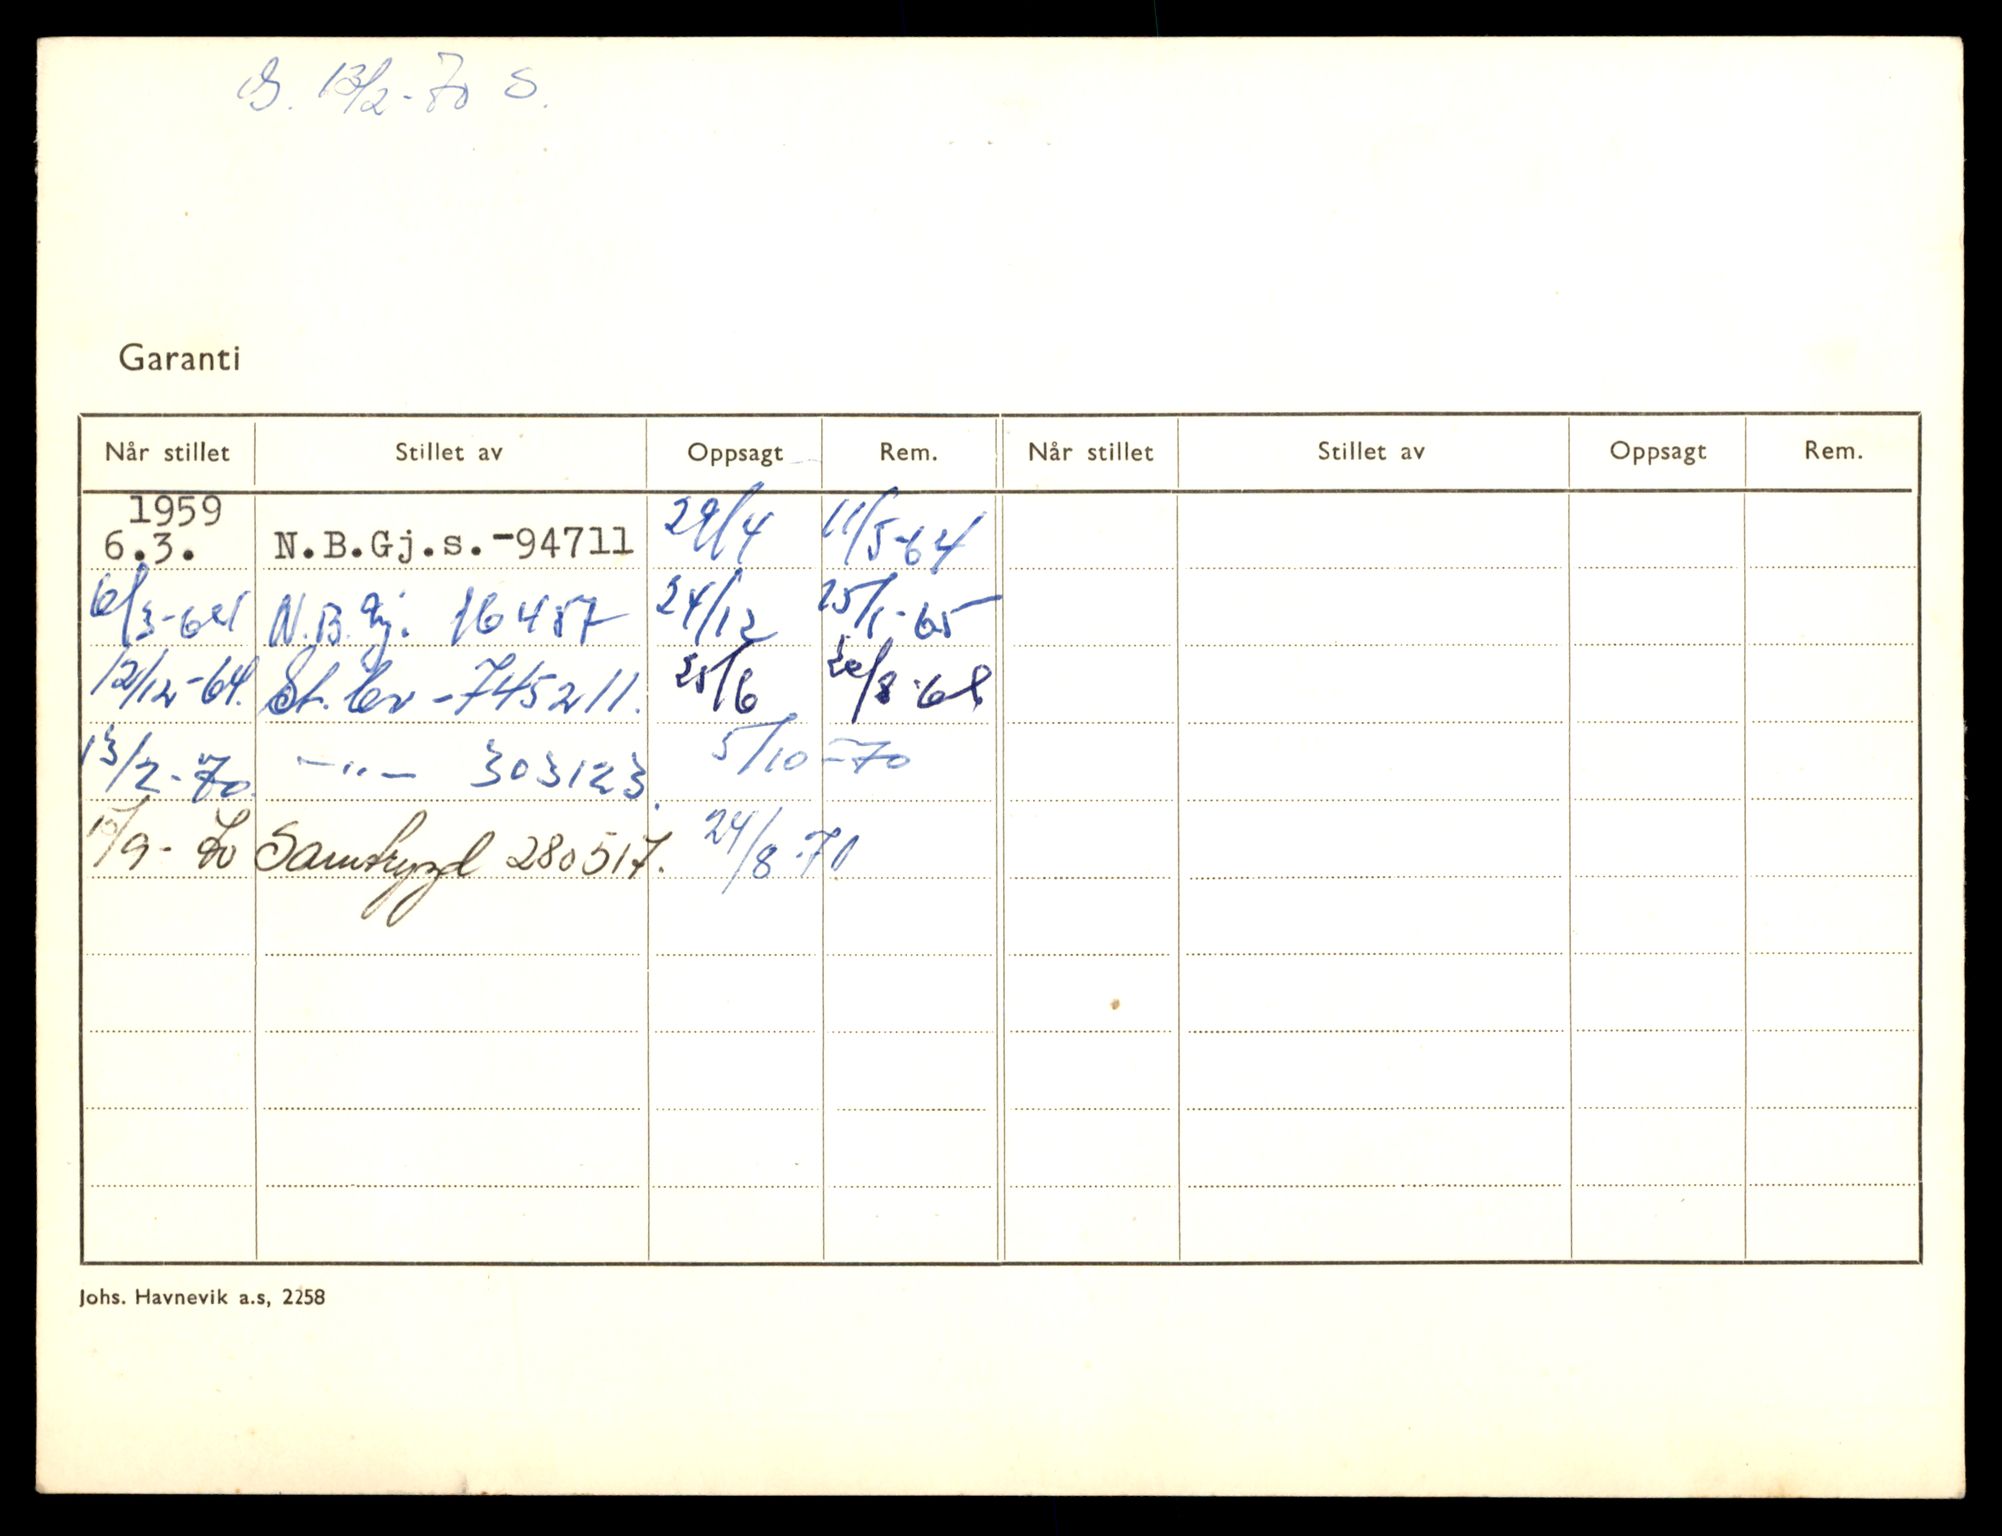 13/2-70 S.
Garanti
Når stillet Stillet av Oppsagt Rem. Når stillet Stillet av Oppsagt Rem.
1959
6.3. N.B.Gj.s.-94711 29/4 11/5-64
6/3-64 N.B.Gj. 16487 24/12 25/1-65
12/12-64. St. -745211. 25/6 20/8-68
13/2-70. -"- 303123. 5/10-70
/9-70 Samtrygd 280517. 24/8-70
Johs. Havnevik a.s, 2258